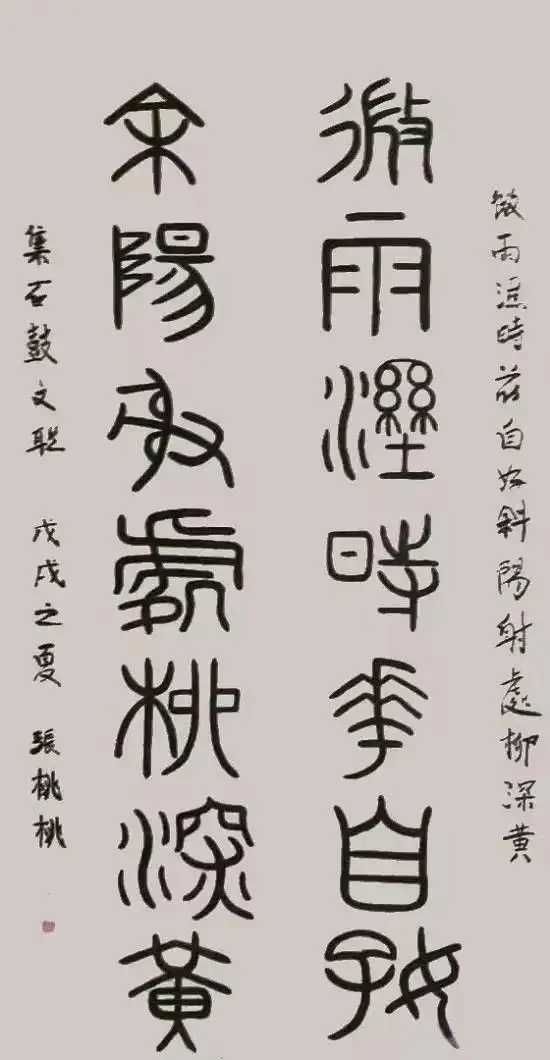 微雨溼時花自好斜陽射處柳深黄
微雨溼時華自好
余陽射處柳深黄
集石鼓文联 戊戌之夏 張桃桃